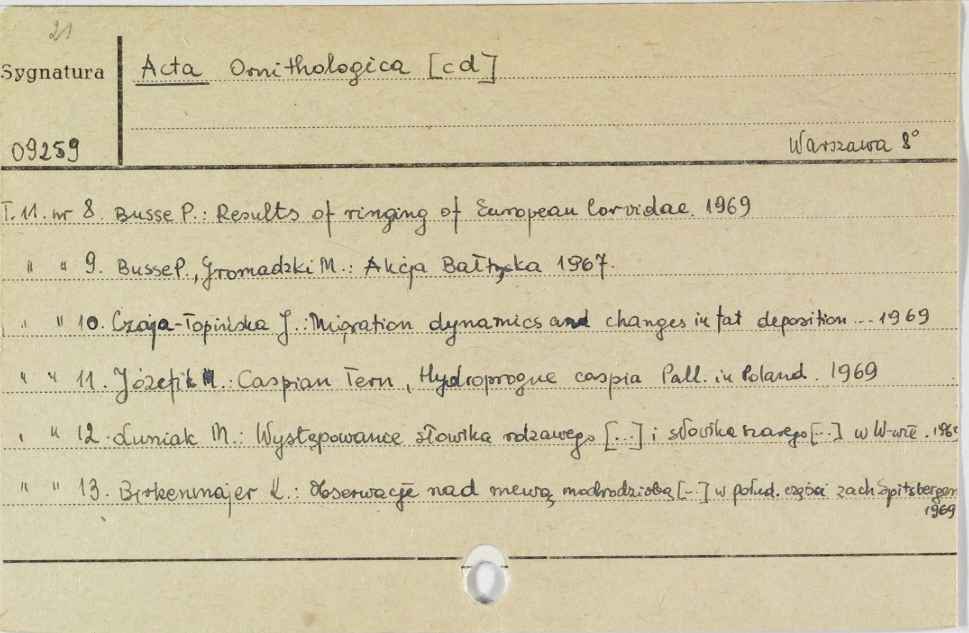 21
Sygnatura
Acta Ornithologica [cd]
09259
Warszawa 8°
T. 11. nr 8. Busse P.: Results of ringing of European Corvidae. 1969
" " 9. Busse P., Gromadzki M.: Akcja Bałtycka 1967.
" " 10. Czaja-Topińska J.: Migration dynamics and changes in fat deposition... 1969
" " 11. Józefik M.: Caspian Tern, Hydroprogne caspia Pall. in Poland. 1969
" " 12. Luniak M.: Występowanie słowika rdzawego [...] i słowika szarego [...] w W-wie.
" " 13. Birkenmajer K.: Obserwacje nad mewą modrodziobą [...] w połud. części zach Spitsbergen
1969